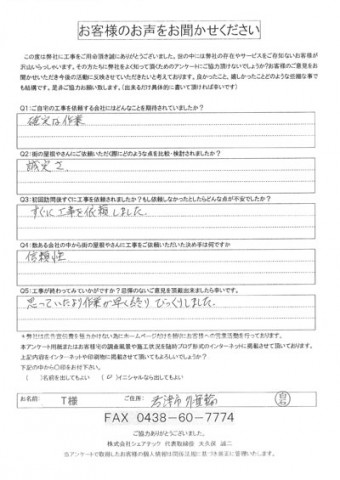 お客様のお声をお聞かせください
この度は弊社に工事をご用命頂き誠にありがとうございました。世の中には弊社の存在やサービスをご存知ないお客様が
沢山いらっしゃいます。その方たちに弊社をよく知って頂くためのアンケートにご協力頂けないでしょうか?お客様のご意見をお
聞かせいただき今後の活動に反映させていただきたいと考えております。良かったこと、嬉しかったことどのような些細な事で
も結構です。是非ご協力お願い致します。(出来るだけ具体的に書いて頂ければ幸いです)
Q1:ご自宅の工事を依頼する会社にはどんなことを期待されていましたか?
確実な作業
Q2:街の屋根やさんにご依頼いただく際にどのような点を比較・検討されましたか?
誠実さ
Q3:初回訪問後すぐに工事を依頼されましたか?もし依頼しなかったとしたらどんな点が不安でしたか?
すぐに工事を依頼しました。
Q4:数ある会社の中から街の屋根やさんに工事をご依頼いただいた決め手は何ですか
信頼性
Q5:工事が終わってみていかがですか?忌憚のないご意見を頂戴出来ましたら幸いです。
思っていたより作業が早く終りびっくりしました。
本アンケート用紙またはお客様宅の調査風景や施工状況を随時ブログ形式でインターネットに掲載させて頂いております。
上記内容をインターネットや印刷物に掲載させて頂いてもよろしいでしょうか?
下記の中から〇印をお付下さい。
( )名前を出してもよい (〇)イニシャルなら出してもよい
お名前: T様
ご住所:
FAX 0438-60-7774
ご協力ありがとうございました。
株式会社シェアテック 代表取締役